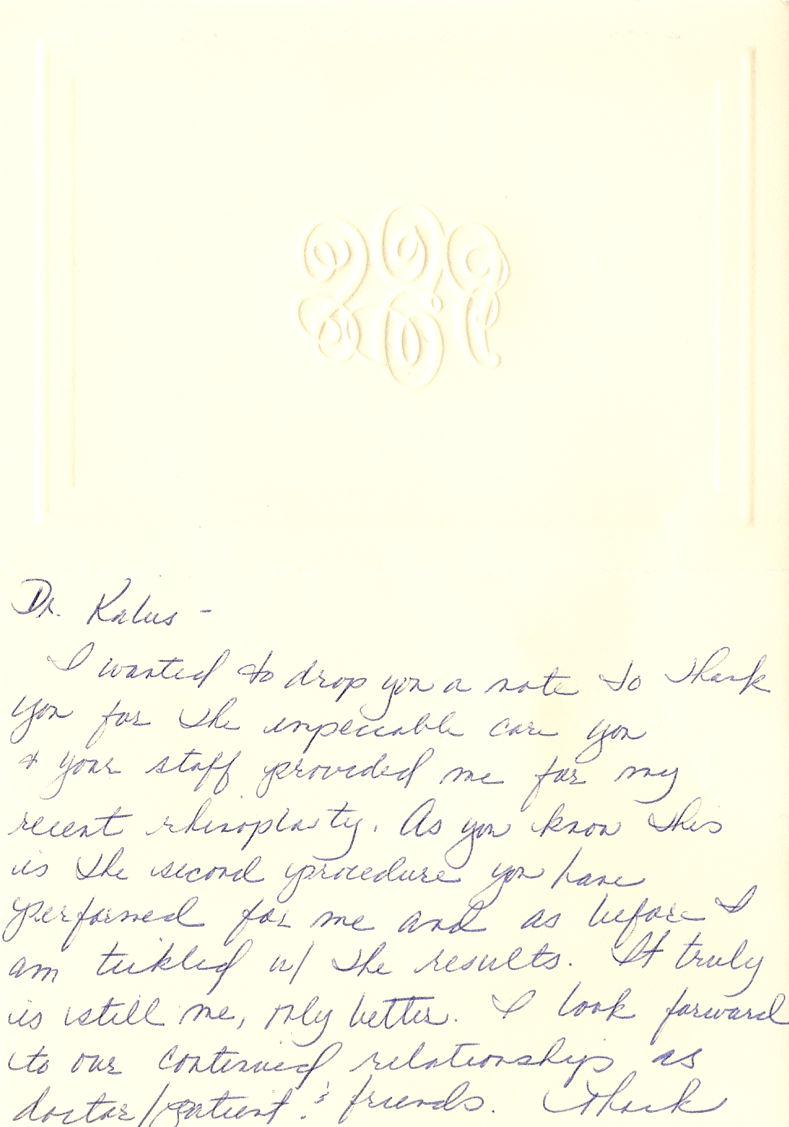 Dr. Kalus -
I wanted to drop you a note to thank
you for the impeccable care you
& your staff provided me for my
recent rhinoplasty. As you know this
is the second procedure you have
performed for me and as before I
am tickled w/ the results. It truly
is still me, only better. I look forward
to our continued relationship as
doctor/patient & friends. Thank